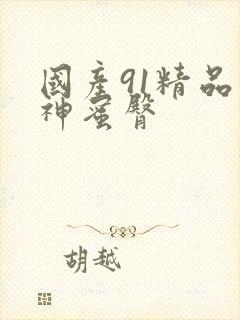 國產91精品
神蜜臀
胡越